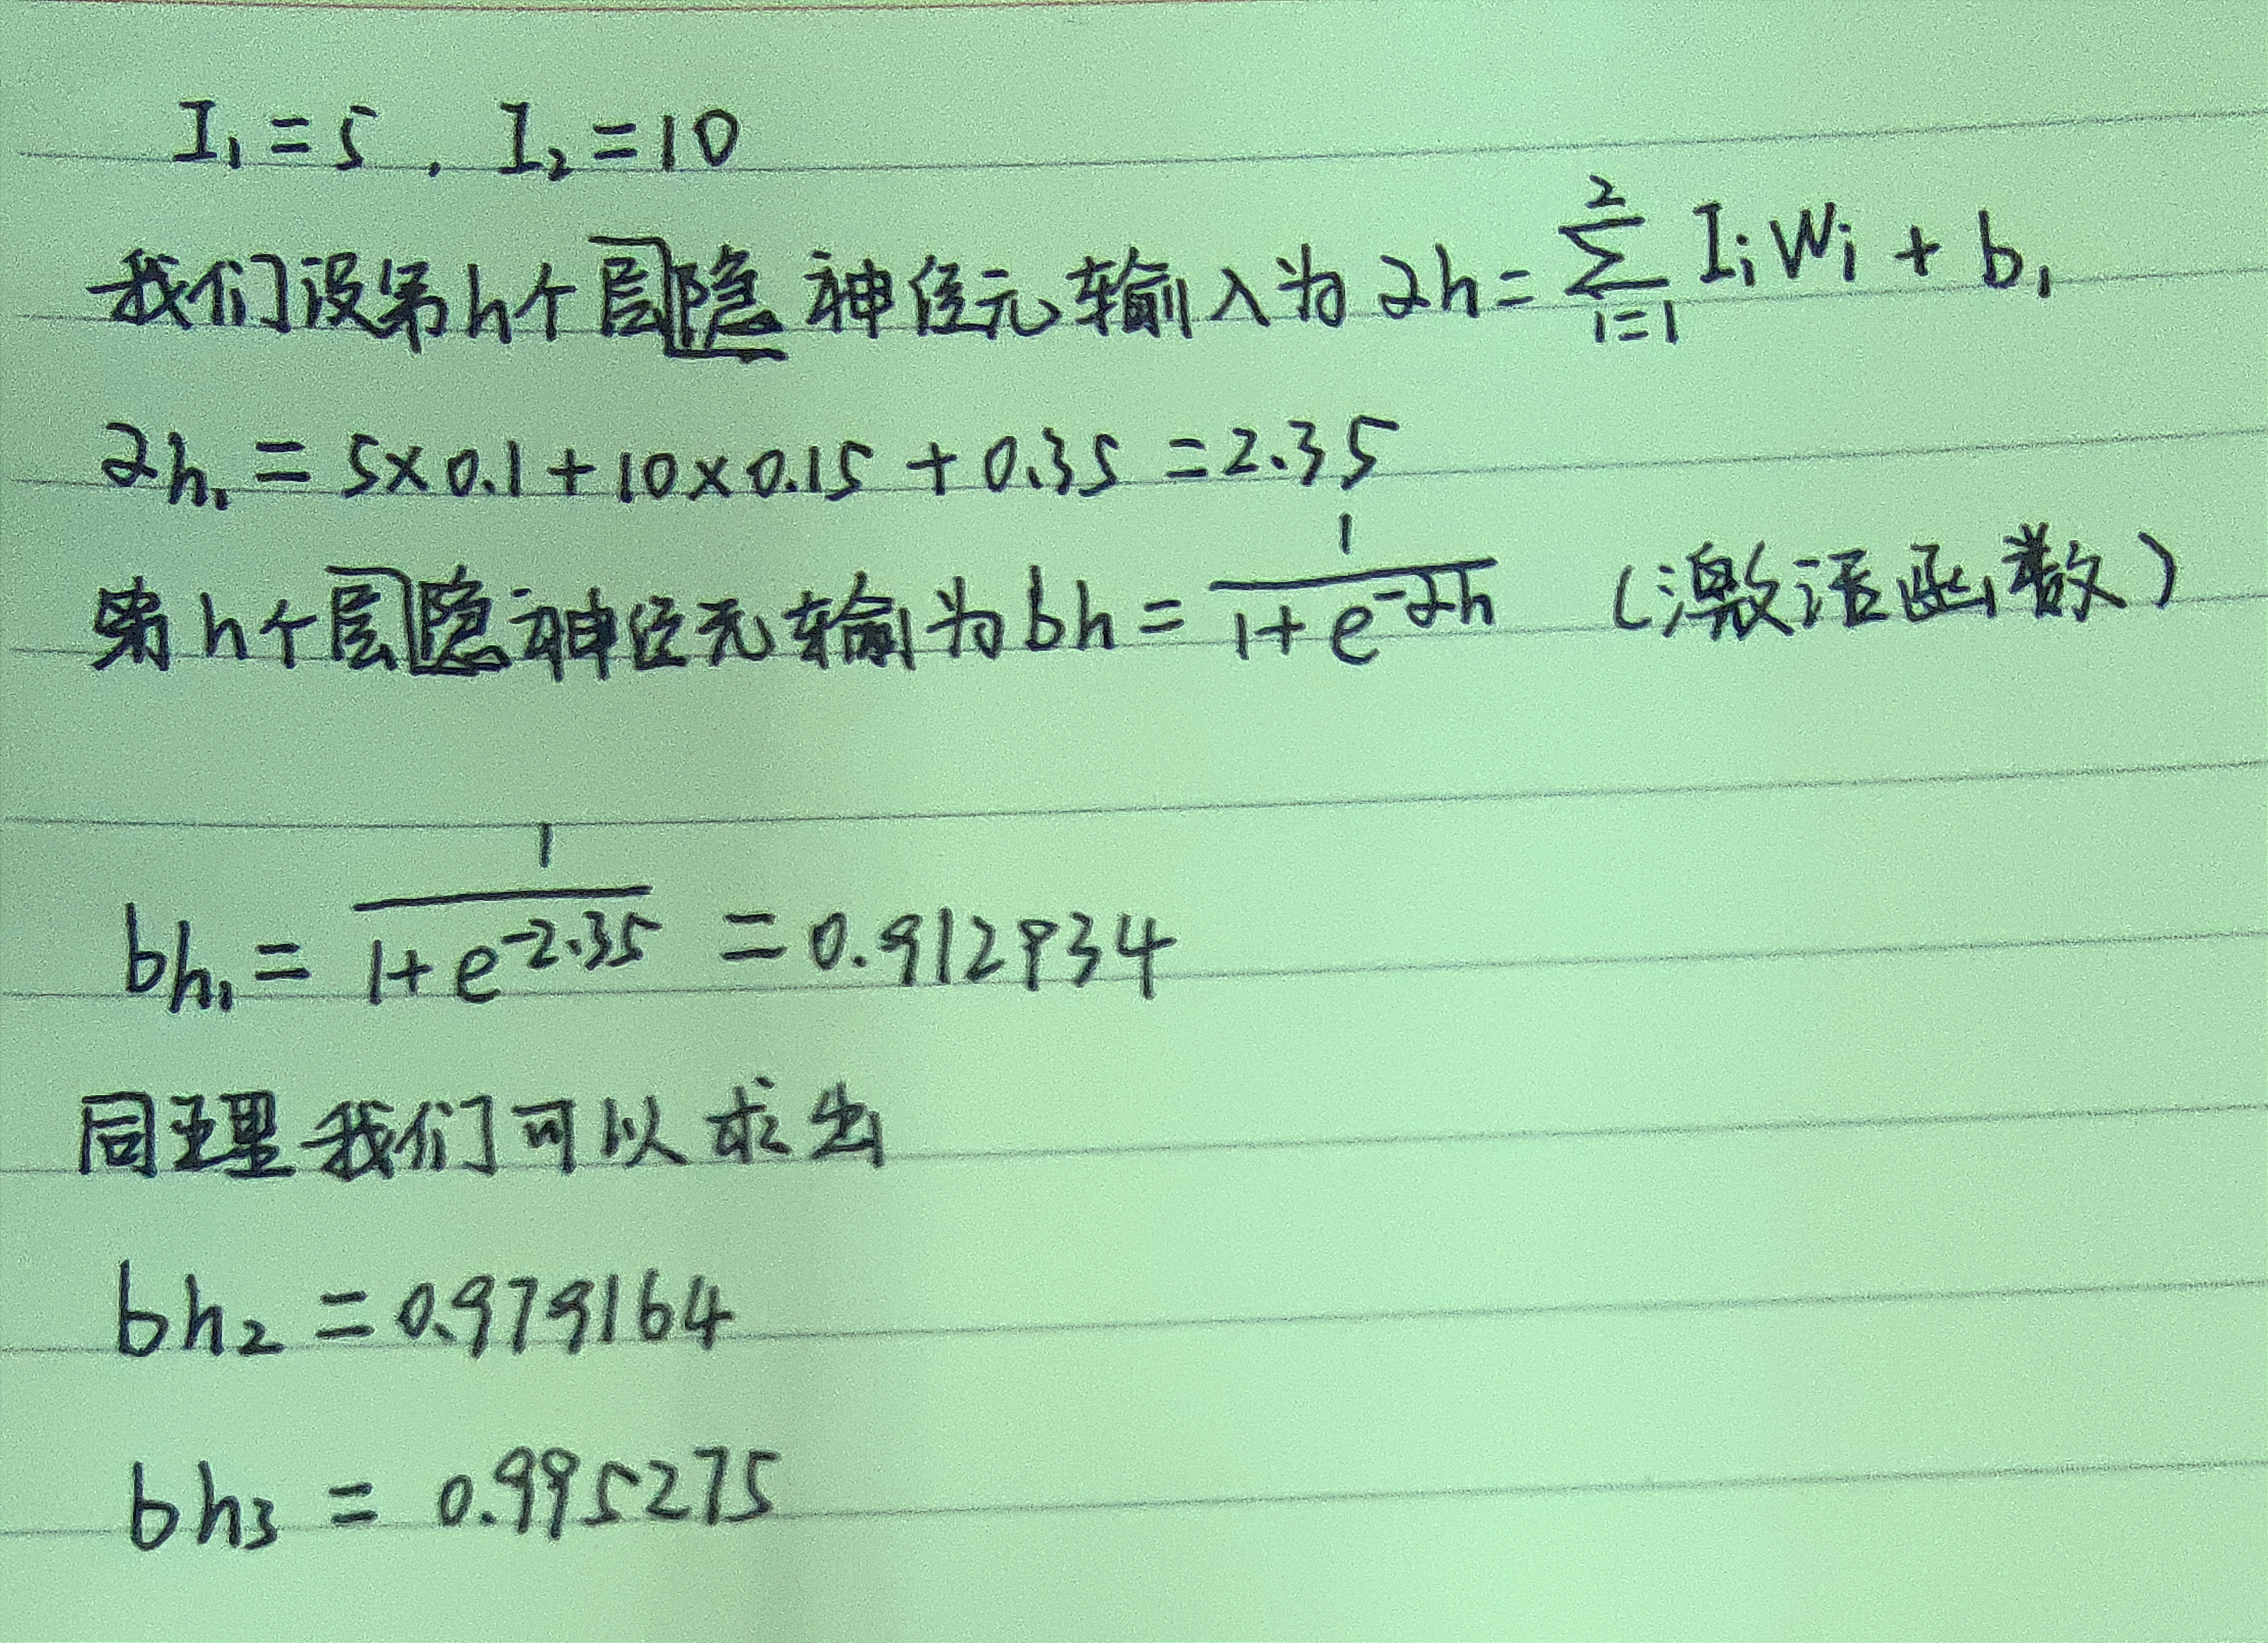 I₁=5，I₂=10
我们设第h个层隐神经元输入为αh=∑²ᵢ₌₁IᵢWᵢ+b₁
αh₁=5×0.1+10×0.15+0.35=2.35
第h个层隐神经元输为bh=1/(1+e^-αh) (激活函数)
bh₁=1/(1+e^-2.35)=0.912934
同理我们可以求出
bh₂=0.979164
bh₃=0.995275